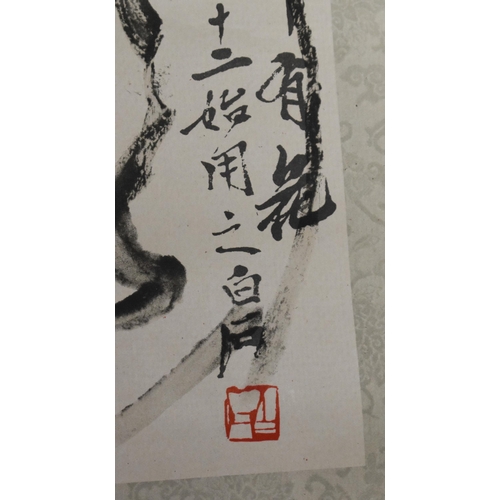 有花
十二始用之白石